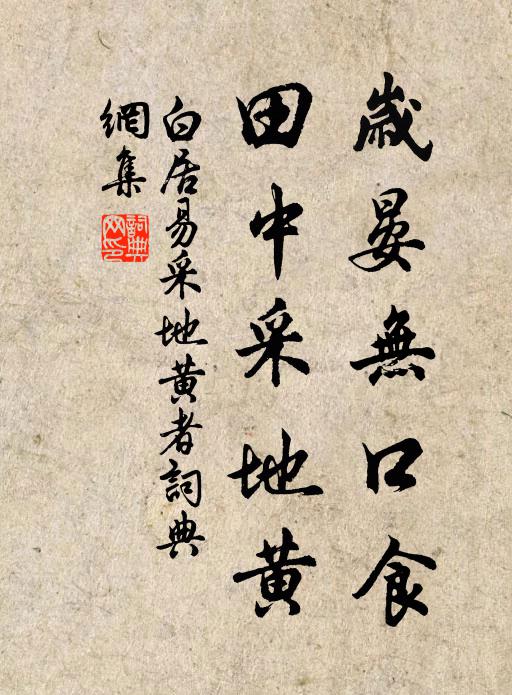 歲晏無口食
田中采地黃
白居易采地黃者詞典
網集
詞典
网印